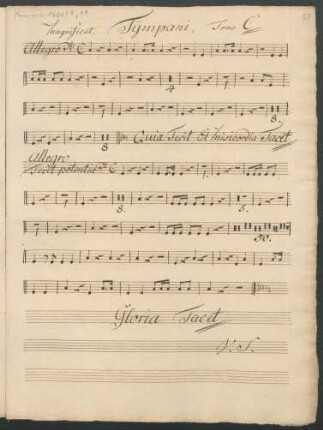 Magnificat, Tÿmpani, Tono C
Allegro C
4
7.
8.
8 Quia Fecit Et Misericordia Tacet
Allegro
Fecit potentiam C
8. 5.
8.
50.
Gloria Tacet
V. S.